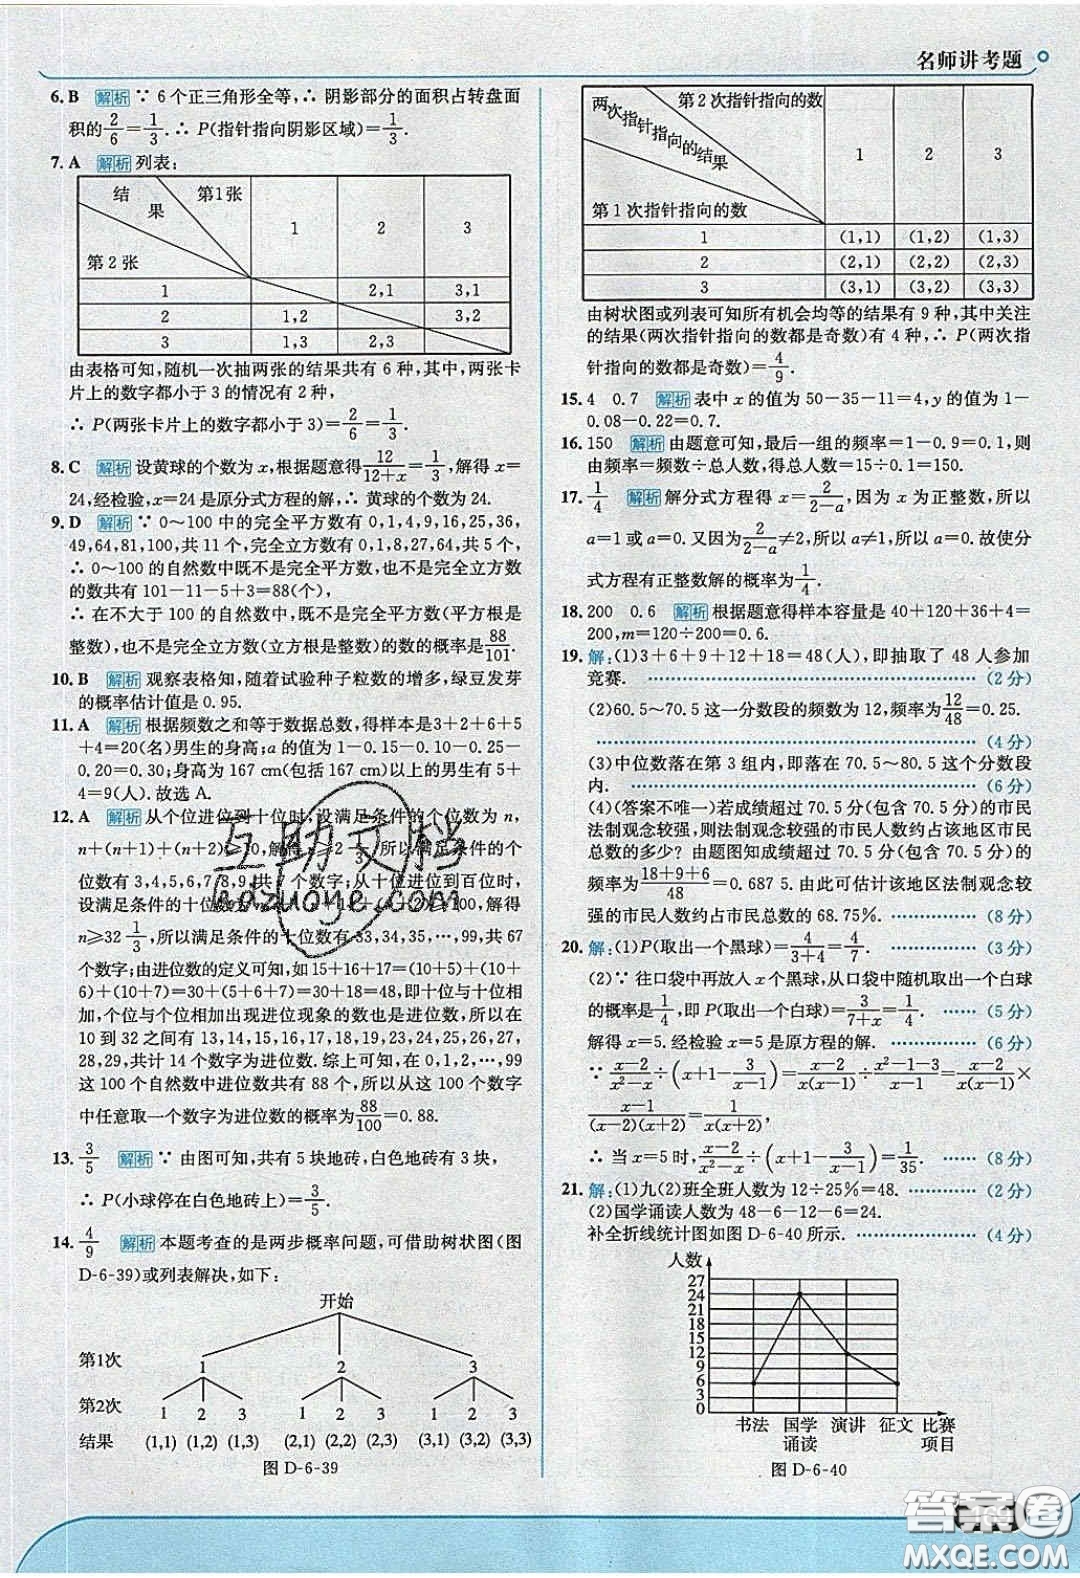 名师讲考题
6. B 解析 ∵ 6 个正三角形全等,∴ 阴影部分的面积占转盘面
积的2/6=1/3.∴ P(指针指向阴影区域)=1/3.
7. A 解析 列表:
结果 第1张 第2张 1 2 3
1 2,1 3,1
2 1,2 3,2
3 1,3 2,3
由表格可知,随机一次抽两张的结果共有 6 种,其中,两张卡
片上的数字都小于 3 的情况有 2 种,
∴ P(两张卡片上的数字都小于 3)=2/6=1/3.
8. C 解析 设黄球的个数为 x,根据题意得12/(12+x)=1/3,解得 x=
24,经检验,x=24 是原分式方程的解,∴ 黄球的个数为 24.
9. D 解析 ∵ 0~100 中的完全平方数有 0,1,4,9,16,25,36,
49,64,81,100,共 11 个,完全立方数有 0,1,8,27,64,共 5 个,
∴ 0~100 的自然数中既不是完全平方数,也不是完全立方数
的数共有 101-11-5+3=88(个),
∴ 在不大于 100 的自然数中,既不是完全平方数(平方根是
整数),也不是完全立方数(立方根是整数)的数的概率是88/101.
10. B 解析 观察表格知,随着试验种子粒数的增多,绿豆发芽
的概率估计值是 0.95.
11. A 解析 根据频数之和等于数据总数,得样本是3+2+6+5
+4=20(名)男生的身高;a 的值为 1-0.15-0.10-0.25-
0.20=0.30;身高为 167 cm(包括 167 cm)以上的男生有 5+
4=9(人).故选 A.
12. A 解析 从个位进位到十位时,设满足条件的个位数为 n,
n+(n+1)+(n+2)≥10,解得 n≥2 1/3,所以满足条件的个
位数有 3,4,5,6,7,8,9,共 7 个数字;从十位进位到百位时,
设满足条件的十位数
100,解得
n≥32 1/3,所以满足条件的十位数有 33,34,35,…,99,共 67
个数字;由进位数的定义可知,如 15+16+17=(10+5)+(10
+6)+(10+7)=30+(5+6+7)=30+18=48,即十位与十位相
加,个位与个位相加出现进位现象的数也是进位数,所以在
10 到 32 之间有 13,14,15,16,17,18,19,23,24,25,26,27,
28,29,共计 14 个数字为进位数.综上可知,在 0,1,2,…,99
这 100 个自然数中进位数共有 88 个,所以从这 100 个数字
中任意取一个数字为进位数的概率为88/100=0.88.
13. 3/5 解析 ∵ 由图可知,共有 5 块地砖,白色地砖有 3 块,
∴ P(小球停在白色地砖上)=3/5.
14. 4/9 解析 本题考查的是两步概率问题,可借助树状图(图
D-6-39)或列表解决,如下:
开始
第1次 1 2 3
第2次 1 2 3 1 2 3 1 2 3
结果 (1,1) (1,2) (1,3) (2,1) (2,2) (2,3) (3,1) (3,2) (3,3)
图 D-6-39
两次指针指向的结果 第 2 次指针指向的数 第 1 次指针指向的数 1 2 3
1 (1,1) (1,2) (1,3)
2 (2,1) (2,2) (2,3)
3 (3,1) (3,2) (3,3)
由树状图或列表可知所有机会均等的结果有 9 种,其中关注
的结果(两次指针指向的数都是奇数)有 4 种,∴ P(两次指
针指向的数都是奇数)=4/9.
15. 4 0.7 解析 表中 x 的值为 50-35-11=4,y 的值为 1-
0.08-0.22=0.7.
16. 150 解析 由题意可知,最后一组的频率=1-0.9=0.1,则
由频率=频数÷总人数,得总人数=15÷0.1=150.
17. 1/4 解析 解分式方程得 x=2/(2-a),因为 x 为正整数,所以
a=1 或 a=0.又因为2/(2-a)≠2,所以 a≠1,所以 a=0.故使分
式方程有正整数解的概率为1/4.
18. 200 0.6 解析 根据题意得样本容量是 40+120+36+4=
200,m=120÷200=0.6.
19. 解:(1)3+6+9+12+18=48(人),即抽取了 48 人参加
竞赛. (2 分)
(2)60.5~70.5 这一分数段的频数为 12,频率为12/48=0.25.
(4 分)
(3)中位数落在第 3 组内,即落在 70.5~80.5 这个分数段
内. (6 分)
(4)(答案不唯一)若成绩超过 70.5 分(包含 70.5 分)的市民
法制观念较强,则法制观念较强的市民人数约占该地区市民
总数的多少? 由题图知成绩超过 70.5 分(包含 70.5 分)的
频率为(18+9+6)/48=0.687 5.由此可估计该地区法制观念较
强的市民人数约占市民总数的 68.75%. (8 分)
20. 解:(1)P(取出一个黑球)=4/(3+4)=4/7. (3 分)
(2)∵ 往口袋中再放入 x 个黑球,从口袋中随机取出一个白球
的概率是1/4,即 P(取出一个白球)=3/(7+x)=1/4. (5 分)
解得 x=5.经检验 x=5 是原方程的解. (6 分)
∵ (x-2)/(x²-x)÷(x+1-3/(x-1))=(x-2)/(x(x-1))÷(x²-4)/(x-1)=(x-2)/(x(x-1))×
(x-1)/((x-2)(x+2))=1/(x(x+2)),
∴ 当 x=5 时,(x-2)/(x²-x)÷(x+1-3/(x-1))=1/35. (8 分)
21. 解:(1)九(2)班全班人数为 12÷25%=48. (2 分)
(2)国学诵读人数为 48-6-12-6=24.
补全折线统计图如图 D-6-40 所示. (4 分)
人数
27
24
21
18
15
12
9
6
3
0
书法 国学诵读 演讲 征文 比赛项目
图 D-6-40
互助文档
hdzuoye.com
答案圈
MXQE.COM